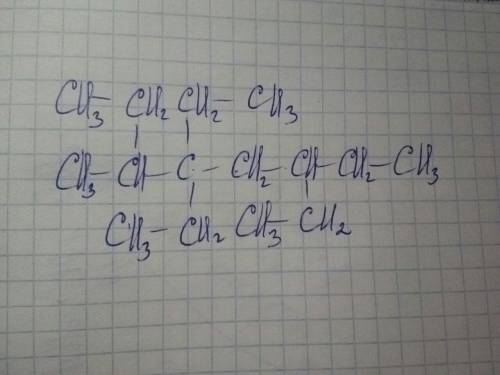 CH₃– CH₂ CH₂– CH₃
CH₃– CH– C – CH₂– CH– CH₂– CH₃
CH₃– CH₂ CH₃– CH₂